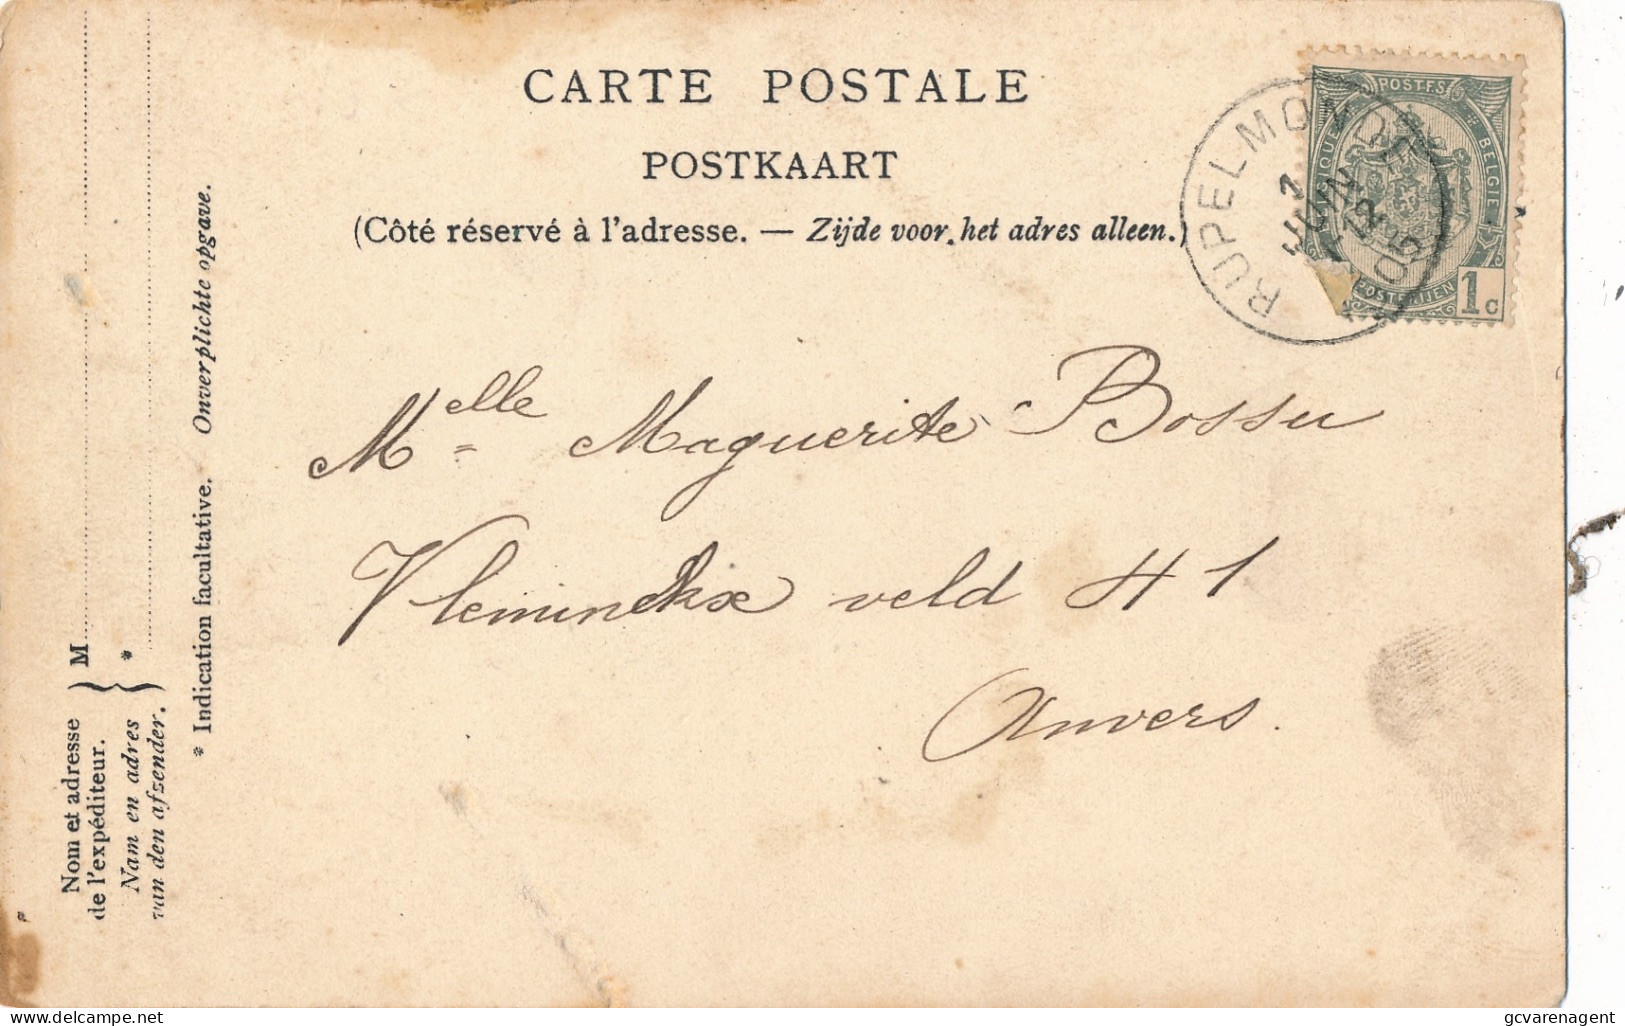 CARTE POSTALE
POSTKAART
(Côté réservé à l'adresse. — Zijde voor het adres alleen.)
RUPELMONDE
7
JUIN
12
05
POSTES
BELGIE
BELGIQUE
POSTERIJEN
1c
Melle Maguerite Bossu
Vleminckx veld 41
Anvers.
Nom et adresse
de l'expéditeur.
Nam en adres
van den afzender.
M
*
* Indication facultative. Onverplichte opgave.
©delcampe.net
gcvarenagent